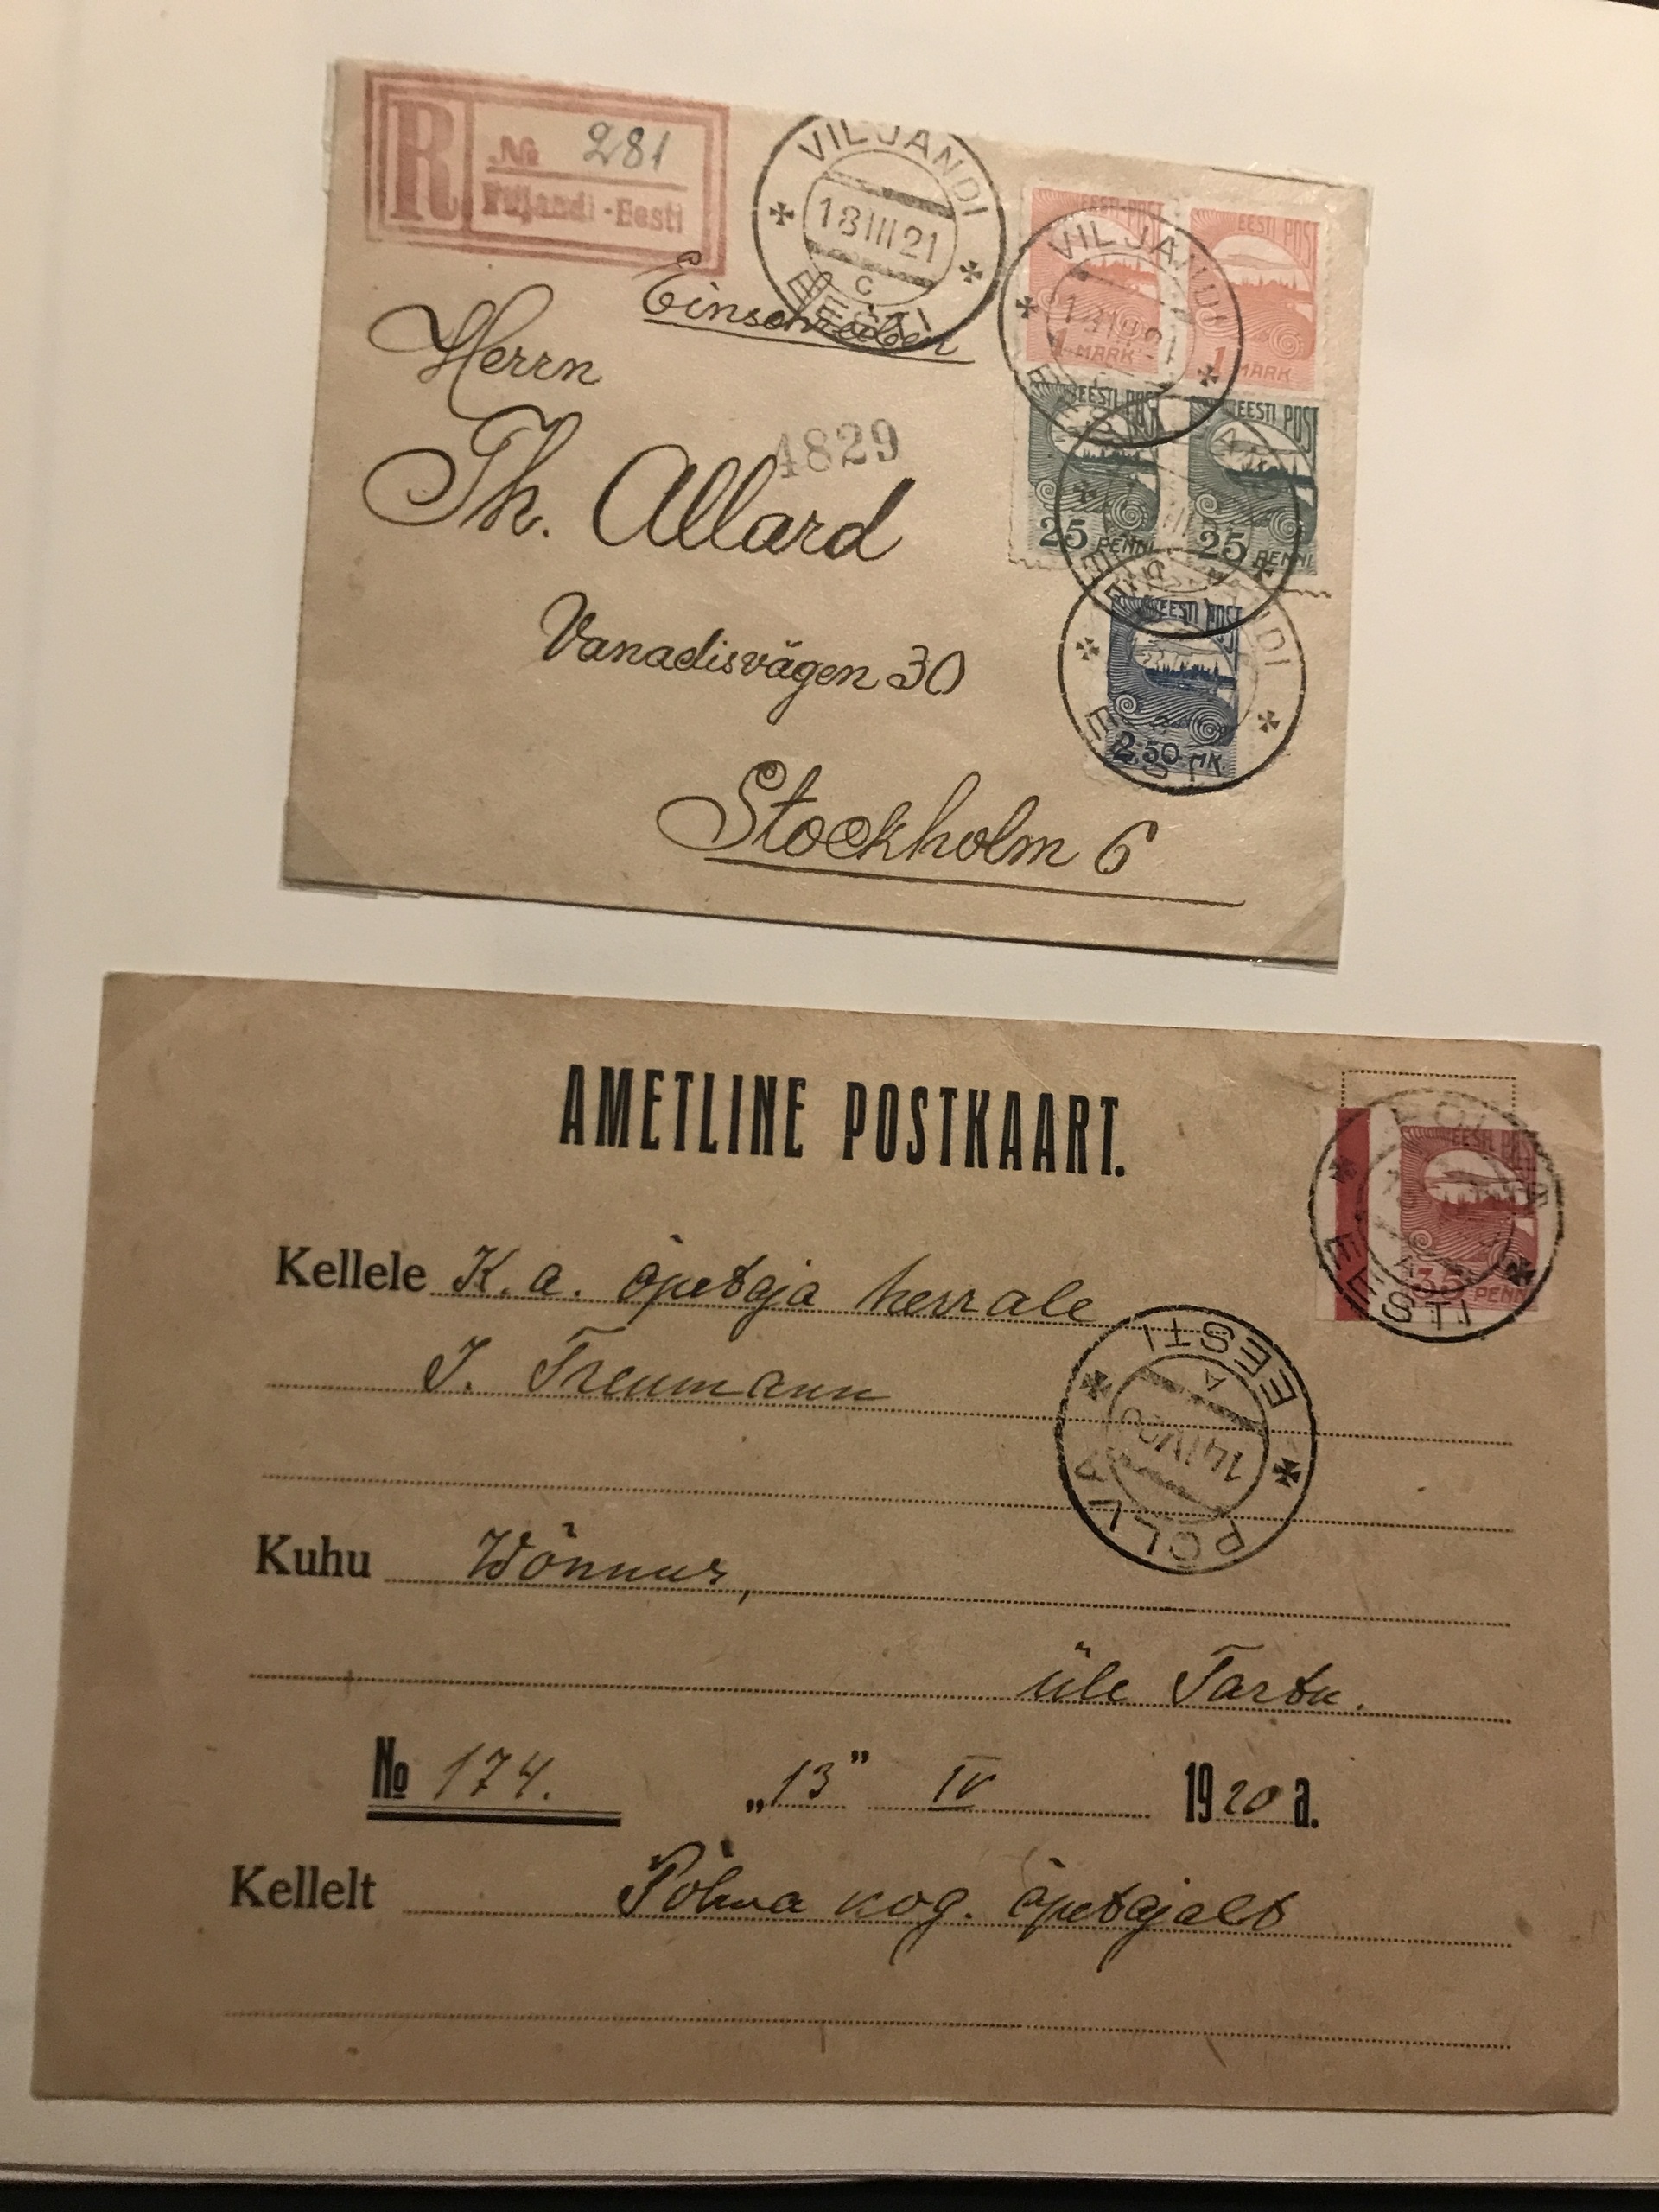 R
№ 281
Viljandi-Eesti
VILJANDI
18 III 21
C
EESTI
Einschreiben
Herrn
Th. Allard
4829
Vanadisvägen 30
Stockholm 6
EESTI POST
1 MARK
EESTI POST
1 MARK
VILJANDI
EESTI
EESTI POST
25 PENNI
EESTI POST
25 PENNI
EESTI POST
2.50 MK.
EESTI
AMETLINE POSTKAART.
EESTI POST
35 PENNI
EESTI
Kellele K. a. õpetaja herrale
J. Treumann
PÕLVA
14 IV 20
A
EESTI
Kuhu Wõnnus,
üle Tartu.
№ 174. „13” IV 1920 a.
Kellelt Põlwa kog. õpetajalt